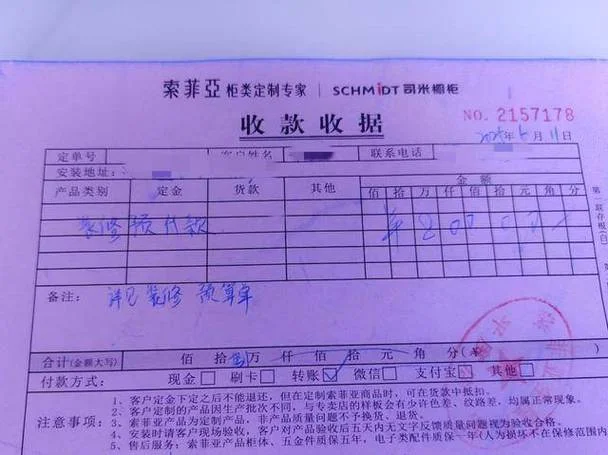 索菲亞 柜类定制专家 | SCHMIDT 司米橱柜
NO. 2157178
收款收据
年 月 11日
定单号 客户姓名 联系电话
安装地址:
产品类别 定金 货款 其他 金额
佰 拾 万 仟 佰 拾 元 角 分
装修预付款 ¥ 2 0 0
备注: 详见装修预算单
合计(金额大写) 佰 拾 万 仟 佰 拾 元 角 分(¥ )
付款方式: 现金□ 刷卡□ 转账☑ 微信□ 支付宝□ 其他□
注意事项:
1、客户定金下定之后不能退还,但在定制索菲亚商品时,可在货款中抵扣。
2、客户定制的产品因生产批次不同,与专卖店的样板会有少许色差、纹路差,均属正常现象。
3、索菲亚产品为定制产品,非产品质量问题不予换货、退货。
4、安装时请客户现场验收,客户对产品验收后五天内无文字反馈质量问题视为验收合格。
5、售后服务:索菲亚产品柜体、五金件质保五年,电子类配件质保一年(人为损坏不在保修范围内
第一联存根(白)